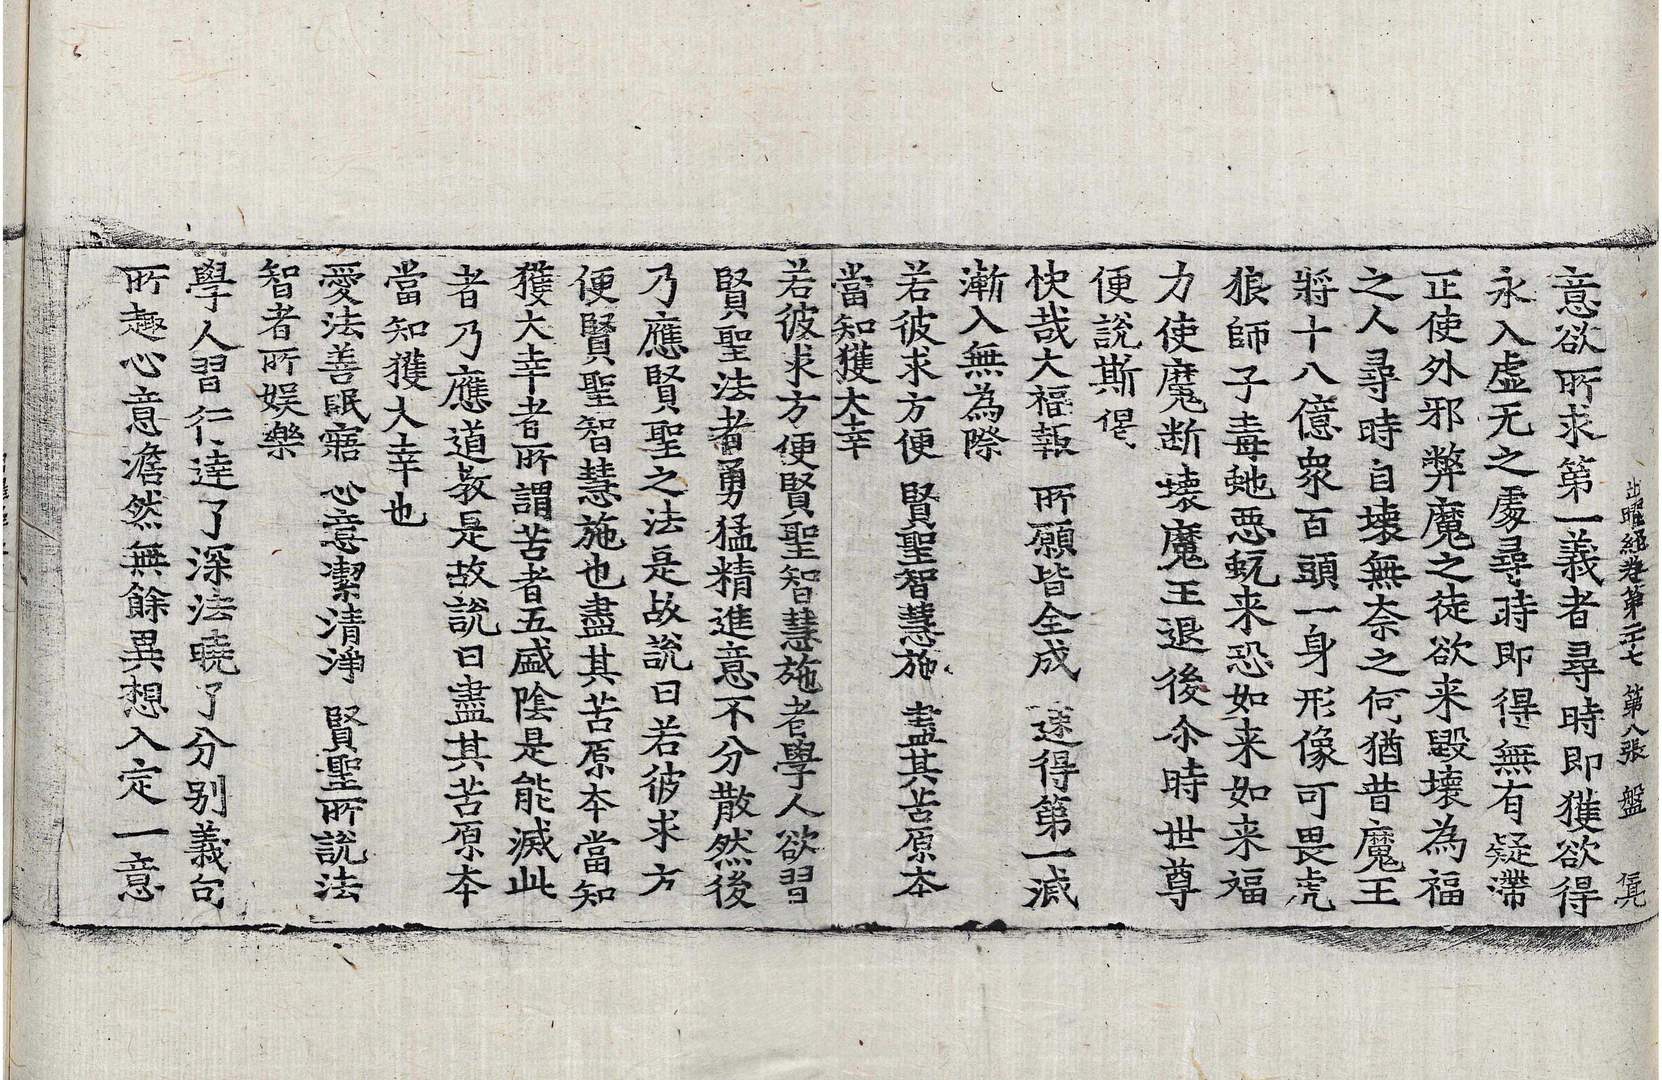 出曜經卷第二十七 第八張 盤
意欲所求第一義者尋時即獲欲得
永入虛无之處尋時即得無有疑滯
正使外邪弊魔之徒欲来毀壞為福
之人尋時自壞無柰之何猶昔魔王
將十八億衆百頭一身形像可畏虎
狼師子毒虵惡蚖来恐如来如来福
力使魔断壞魔王退後尒時世尊
便說斯偈
快哉大福報 所願皆全成 速得第一滅
漸入無為際
若彼求方便 賢聖智慧施 盡其苦原本
當知獲大幸
若彼求方便賢聖智慧施者學人欲習
賢聖法者勇猛精進意不分散然後
乃應賢聖之法是故說曰若彼求方
便賢聖智慧施也盡其苦原本當知
獲大幸者所謂苦者五盛陰是能滅此
者乃應道教是故說曰盡其苦原本
當知獲大幸也
愛法善眠寤 心意潔清淨 賢聖所說法
智者所娛樂
學人習行達了深法曉了分别義句
所趣心意澹然無餘異想入定一意